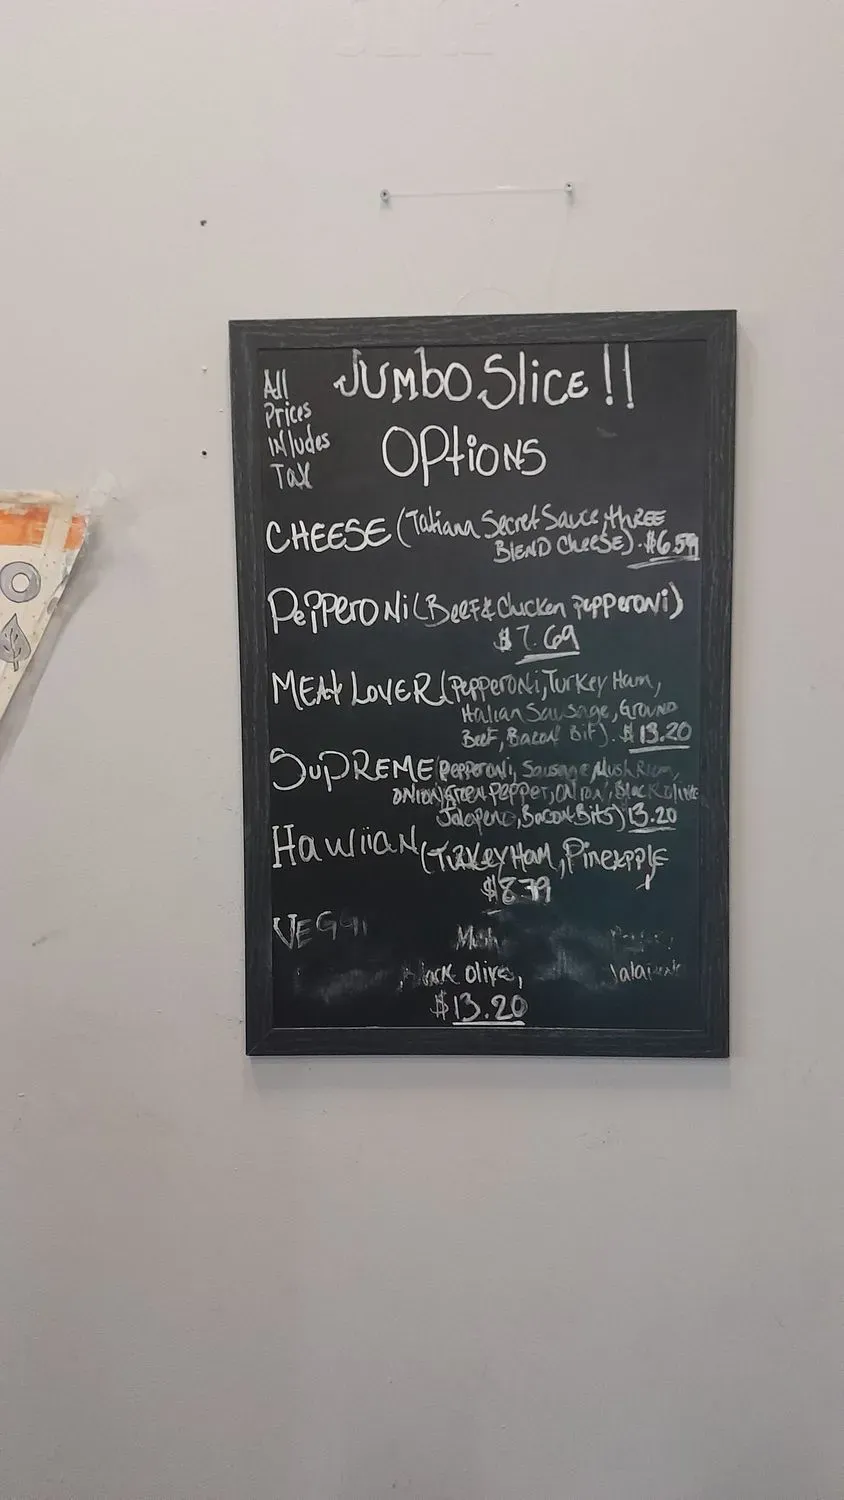 All
Prices
Inludes
Tax
Jumbo Slice!!
Options
CHEESE (Tatiana Secret Sauce, three
Blend Cheese). $6.59
Pepperoni (Beef & Chicken pepperoni)
$7.69
Meat Lover (pepperoni, Turkey Ham,
Italian Sausage, Ground
Beef, Bacon Bit). $13.20
Supreme (pepperoni, Sausage, Mushroom,
onion, Green pepper, onion, Black olive
Jalapeno, Bacon Bits) 13.20
Hawiian (Turkey Ham, Pineapple
$8.79
VEGGI
olives,
$13.20